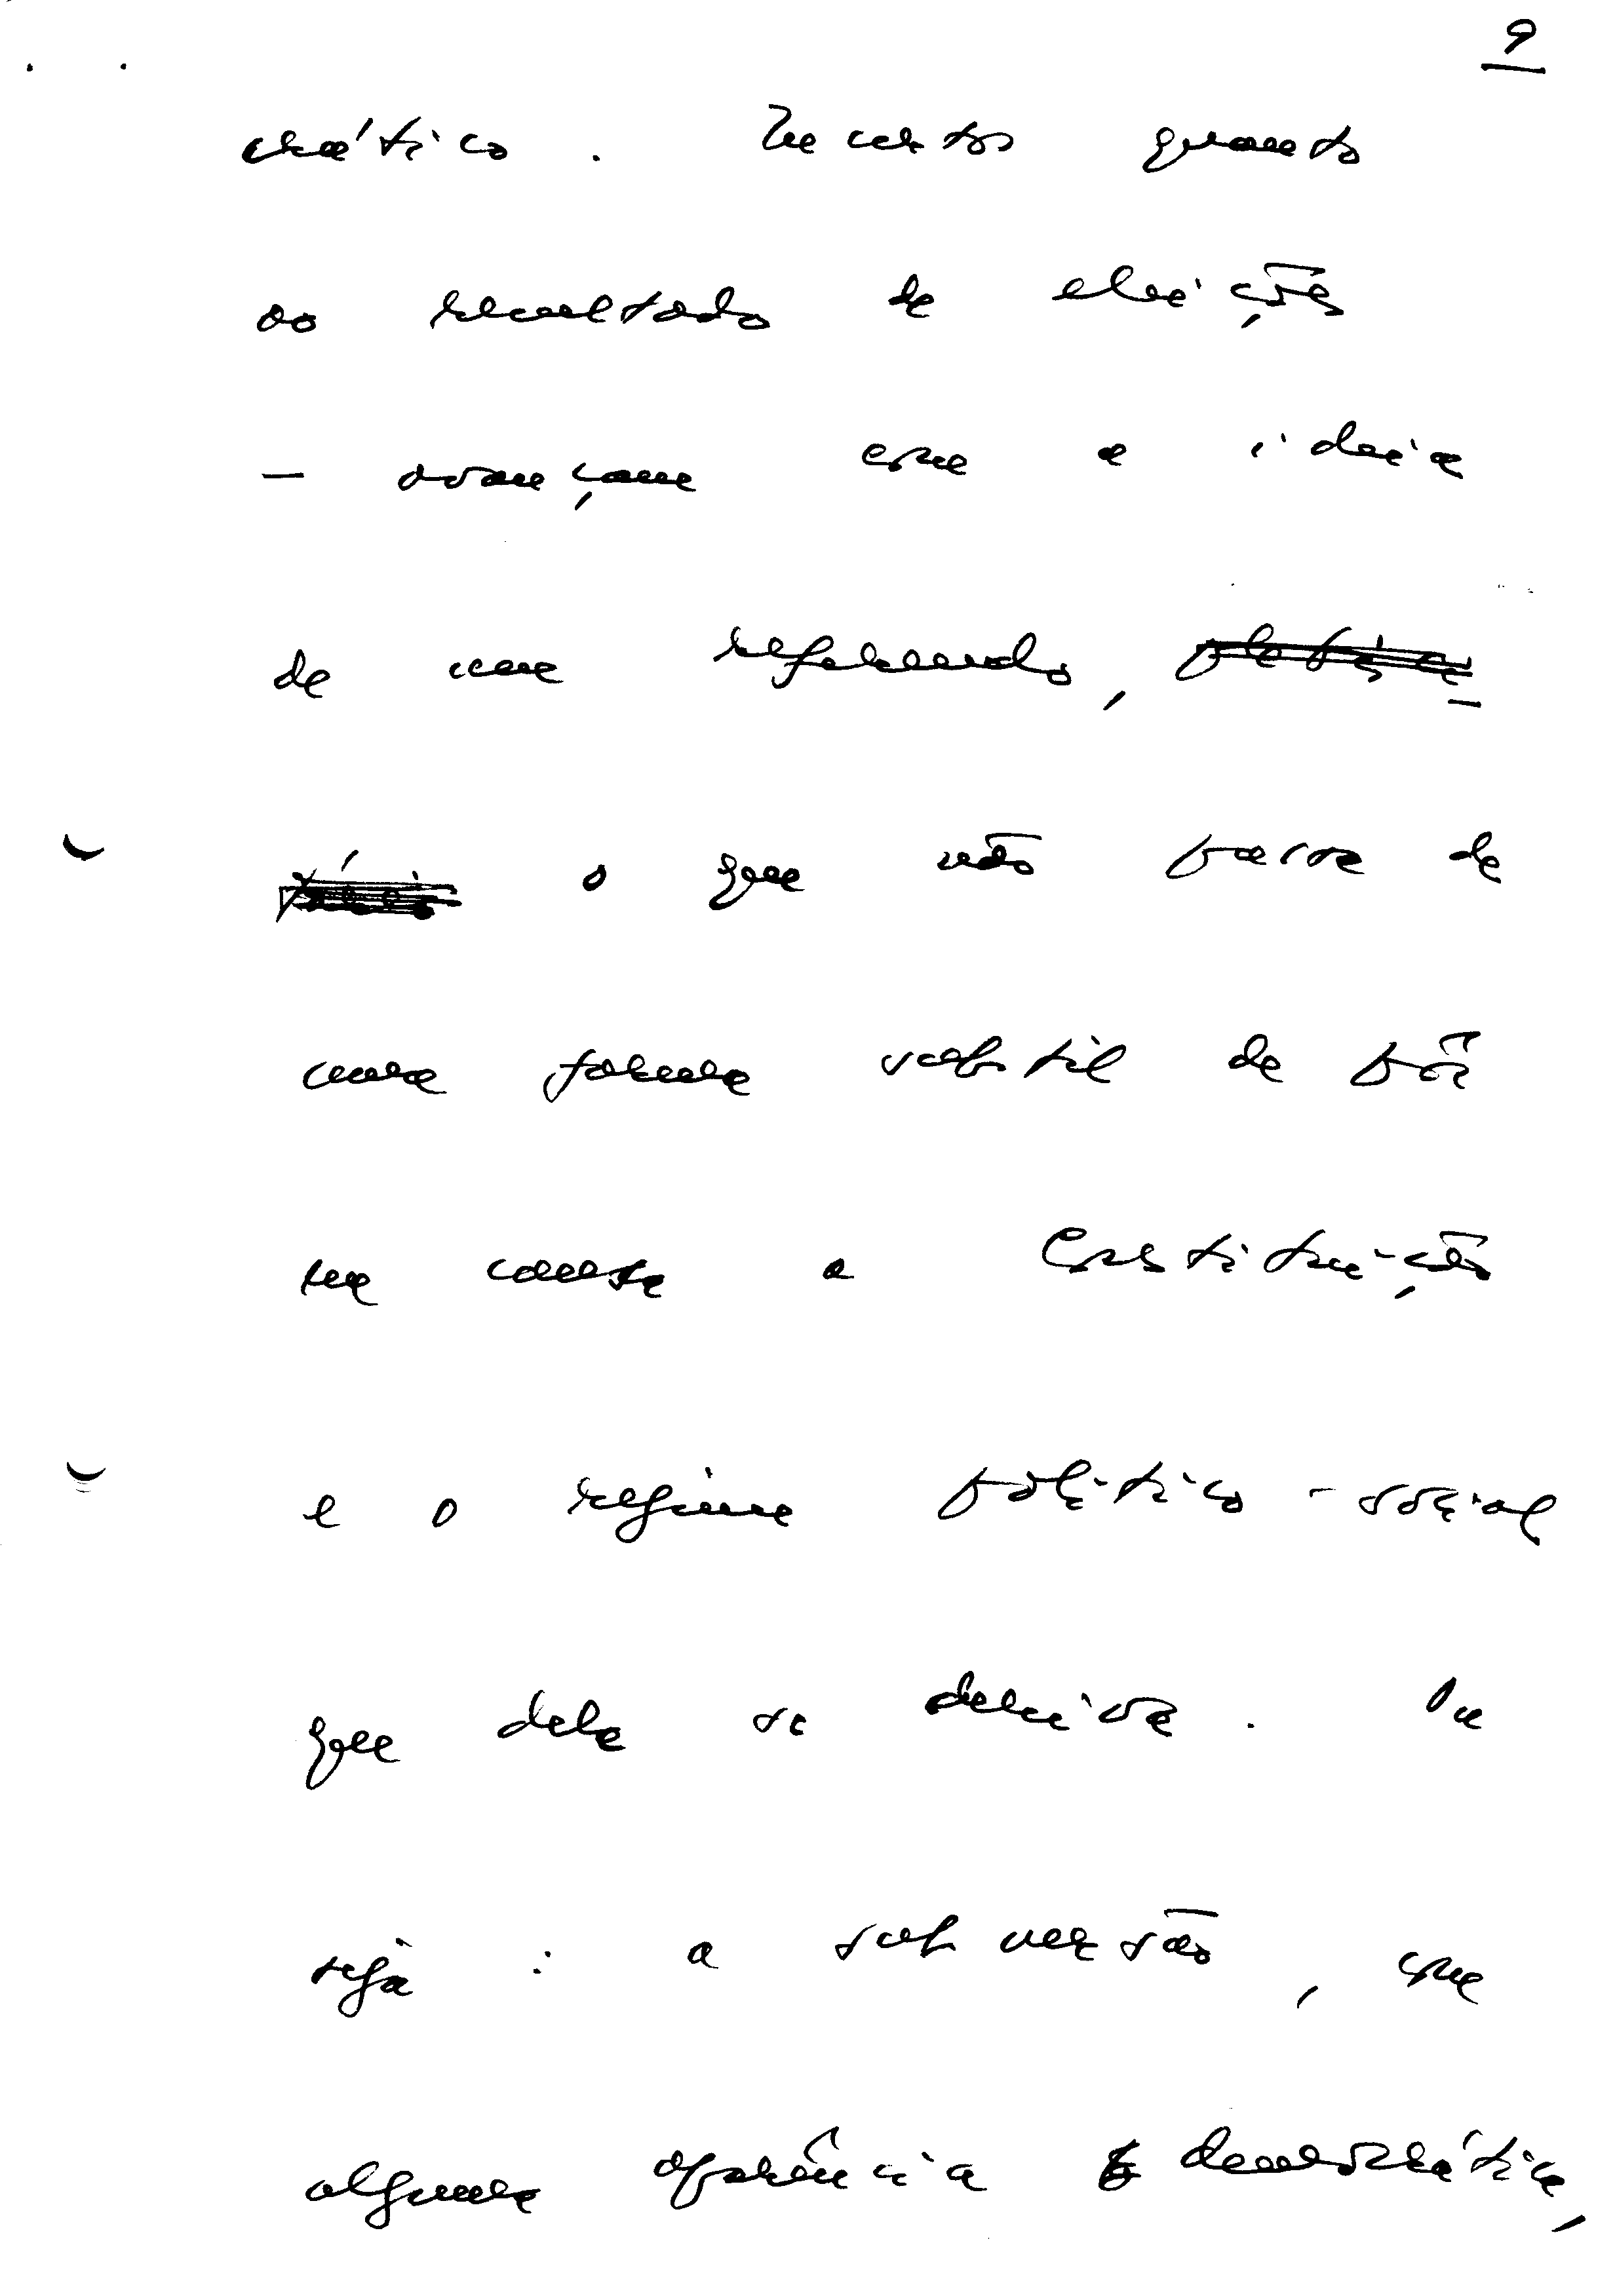 9
crático. Incertos quanto
ao resultado de eleições
- avançam com a ideia
de um referendo,
o que não passa de
uma forma subtil de pôr
em causa a Constituição
e o regime político-social
que dela se deriva. Ou
seja: a subversão, com
alguma aparência democrática,